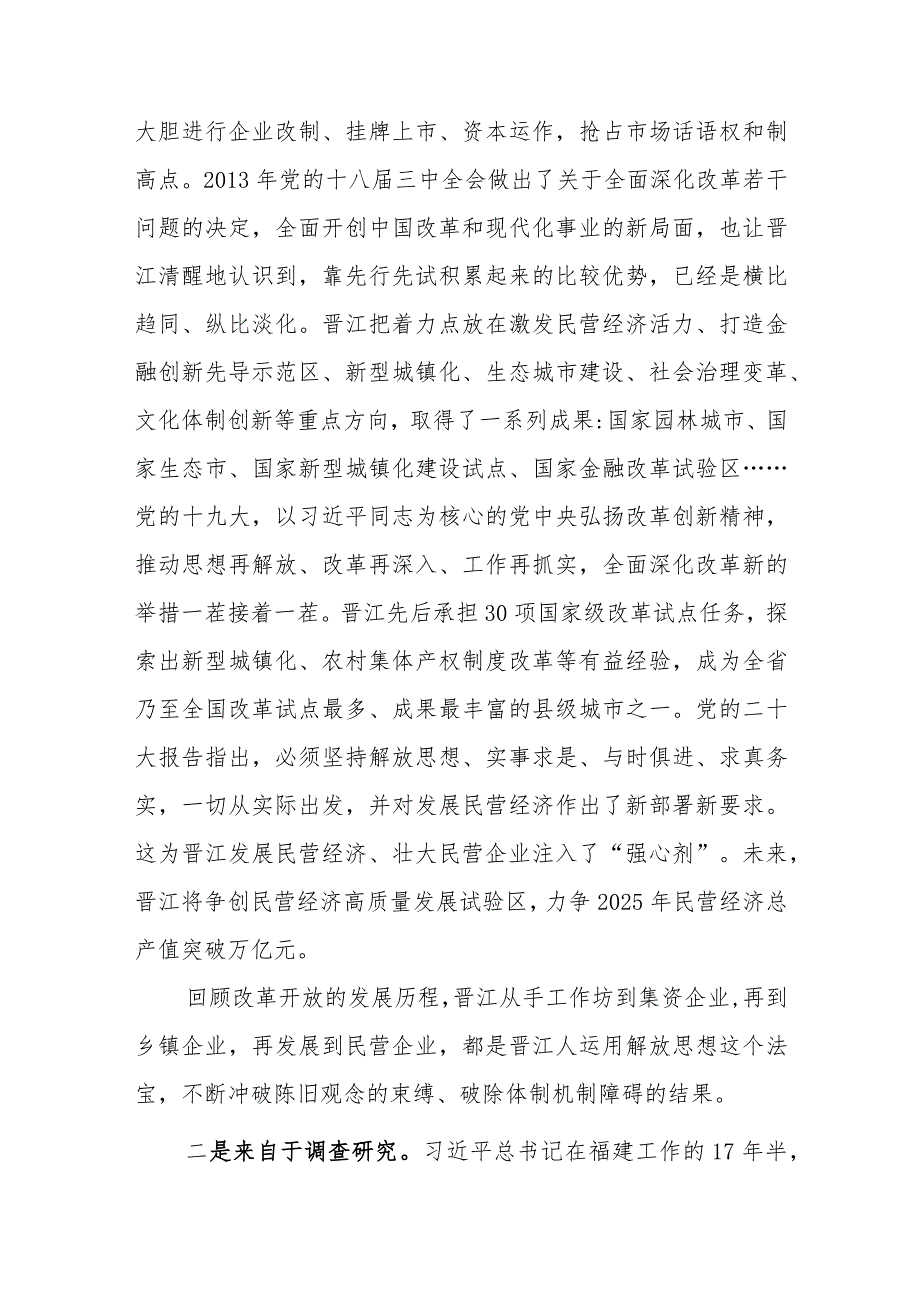 大胆进行企业改制、挂牌上市、资本运作，抢占市场话语权和制
高点。2013 年党的十八届三中全会做出了关于全面深化改革若干
问题的决定，全面开创中国改革和现代化事业的新局面，也让晋
江清醒地认识到，靠先行先试积累起来的比较优势，已经是横比
趋同、纵比淡化。晋江把着力点放在激发民营经济活力、打造金
融创新先导示范区、新型城镇化、生态城市建设、社会治理变革、
文化体制创新等重点方向，取得了一系列成果:国家园林城市、国
家生态市、国家新型城镇化建设试点、国家金融改革试验区……
党的十九大，以习近平同志为核心的党中央弘扬改革创新精神，
推动思想再解放、改革再深入、工作再抓实，全面深化改革新的
举措一茬接着一茬。晋江先后承担 30 项国家级改革试点任务，探
索出新型城镇化、农村集体产权制度改革等有益经验，成为全省
乃至全国改革试点最多、成果最丰富的县级城市之一。党的二十
大报告指出，必须坚持解放思想、实事求是、与时俱进、求真务
实，一切从实际出发，并对发展民营经济作出了新部署新要求。
这为晋江发展民营经济、壮大民营企业注入了“强心剂”。未来，
晋江将争创民营经济高质量发展试验区,力争 2025 年民营经济总
产值突破万亿元。
回顾改革开放的发展历程,晋江从手工作坊到集资企业,再到
乡镇企业，再发展到民营企业，都是晋江人运用解放思想这个法
宝，不断冲破陈旧观念的束缚、破除体制机制障碍的结果。
二是来自于调查研究。习近平总书记在福建工作的 17 年半，